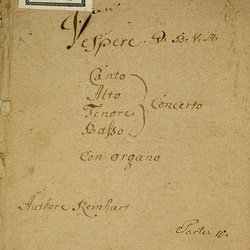 Vespere. D. B. V. M.
Canto
Alto
Tenore
Basso.
Concerto
Con organo
Authore Reinhart
Partes 10.